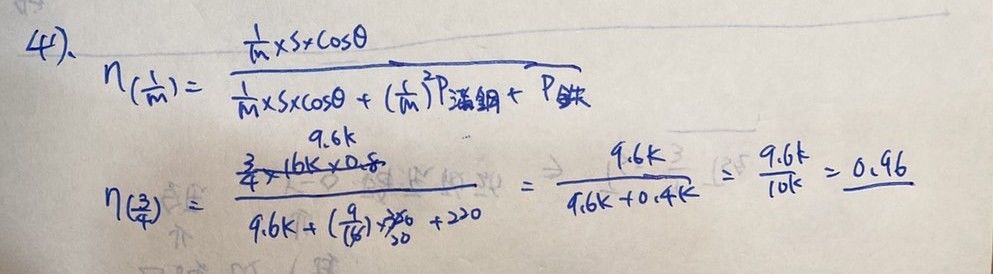 41).
η(1/m) = (1/m × S × cosθ) / (1/m × S × cosθ + (1/m)² P滿銅 + P鐵)
9.6k
η(3/4) = (3/4 × 16k × 0.8) / (9.6k + (9/16) × 20 + 220) = 9.6k / (9.6k + 0.4k) = 9.6k / 10k = 0.96